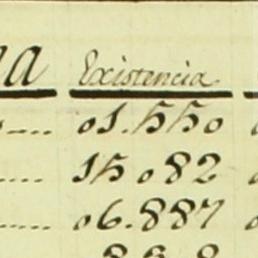 Existencia
01.550
15.082
06.887